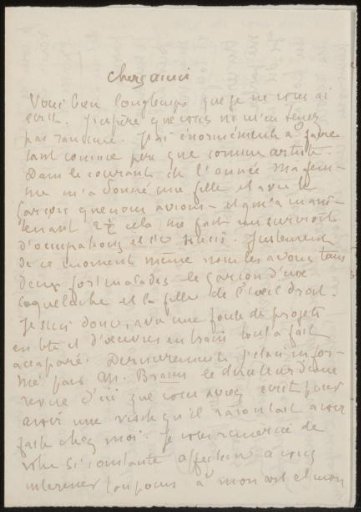 chers amis
Voici bien longtemps que je ne vous ai
écrit. J'espère que vous ne m'en tenez
pas rancune. J'ai énormément à faire
tant comme père que comme artiste.
Dans le courant de l'année ma fem-
me m'a donné une fille et avec le
garçon que nous avions et qui a main-
tenant 2½ cela me fait un surcroit
d'occupations et de soucis. Justement
de ce moment même nous les avons tous
deux fort malades le garçon d'une
coqueluche et la fille de l'œil droit.
Je suis donc, avec une foule de projets
en tête et d'œuvres en train tout à fait
accaparé. Dernièrement j'étais infor-
mé par M. Braun le directeur d'une
revue d'ici que vous aviez écrit pour
avoir une visite qu'il racontait avoir
faite chez moi. Je vous remercie de
votre si constante affection à vous
intéresser toujours à mon art et mon